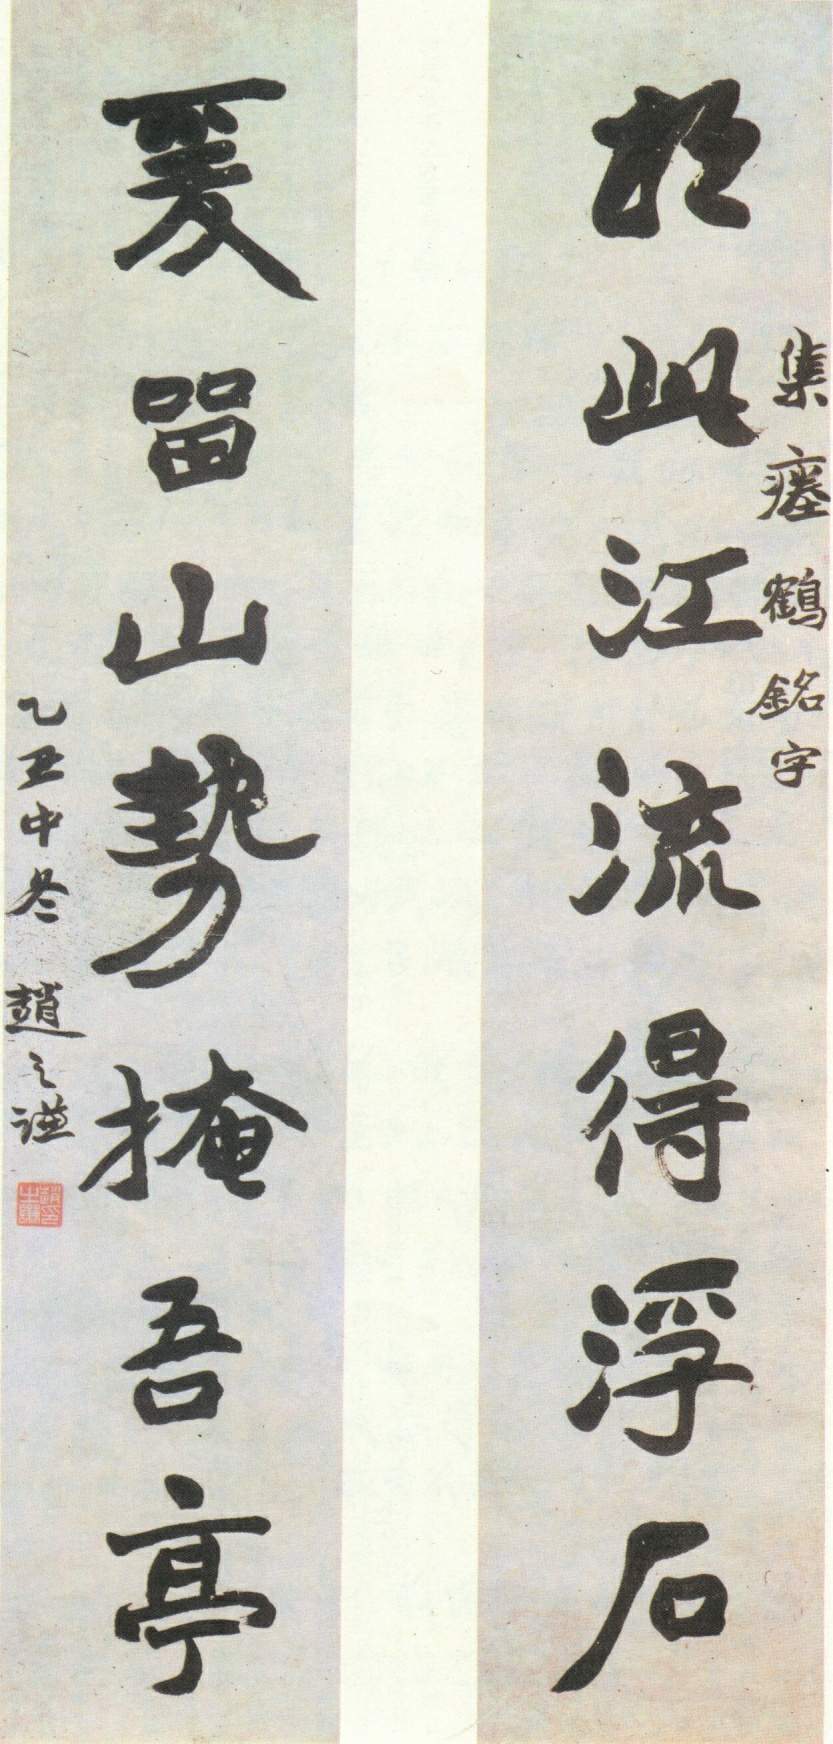 集瘞鶴銘字
於此江流得浮石
爰留山勢掩吾亭
乙丑中冬 趙之謙
趙印之謙